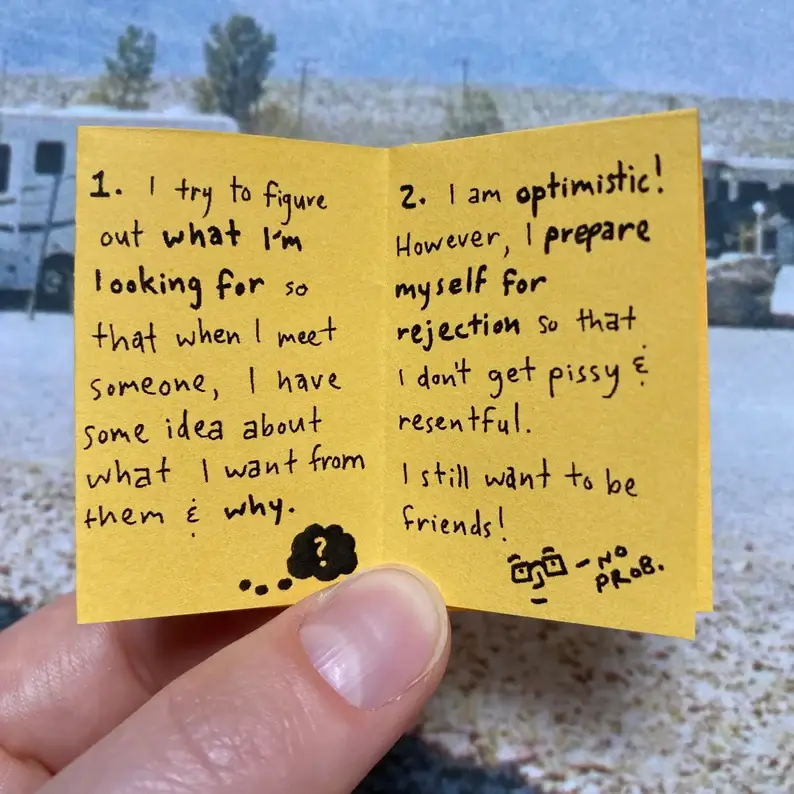 1. I try to figure
out what I'm
looking for so
that when I meet
someone, I have
some idea about
what I want from
them & why.
?
2. I am optimistic!
However, I prepare
myself for
rejection so that
I don't get pissy &
resentful.
I still want to be
friends!
- NO
PROB.